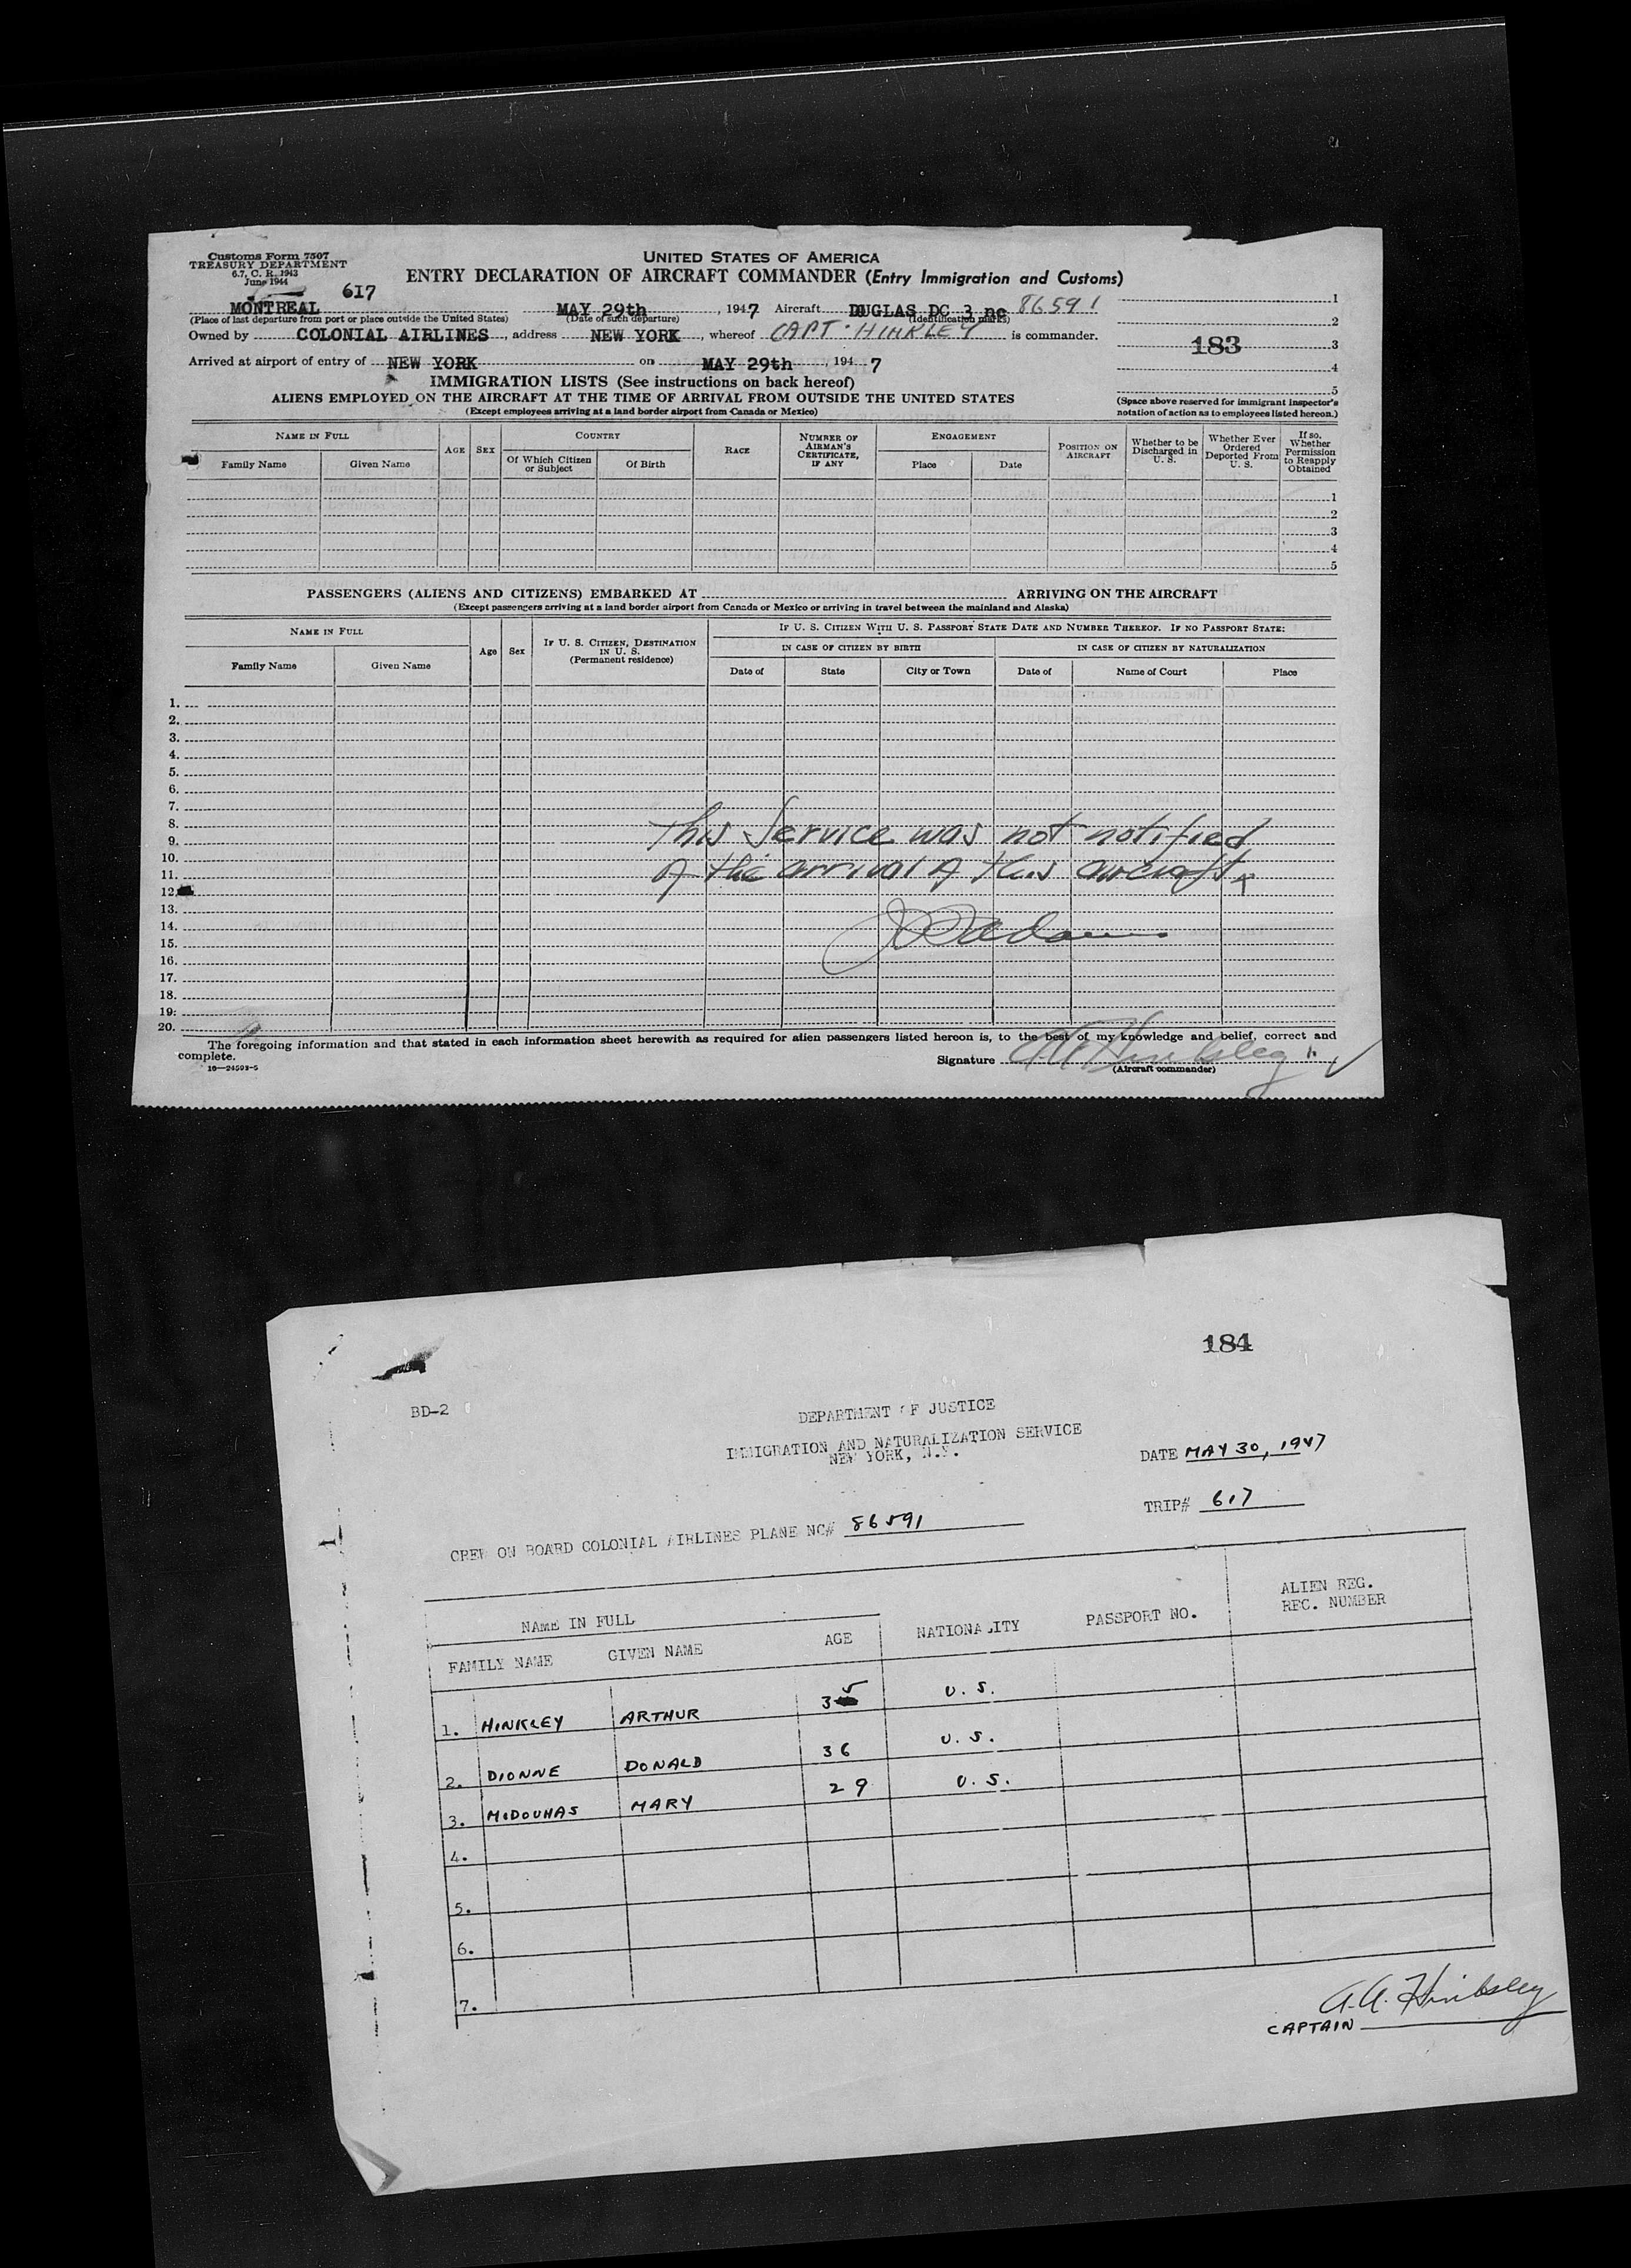 Customs Form 7507
TREASURY DEPARTMENT
6.7, C. R., 1943
June 1944
UNITED STATES OF AMERICA
ENTRY DECLARATION OF AIRCRAFT COMMANDER (Entry Immigration and Customs)
617
MONTREAL MAY 29th, 1947 Aircraft DUGLAS DC 3 nc 86591
(Place of last departure from port or place outside the United States) (Date of such departure) (Identification marks)
Owned by COLONIAL AIRLINES, address NEW YORK, whereof CAPT. HINKLEY is commander.
Arrived at airport of entry of NEW YORK on MAY 29th, 1947
1
2
183 3
4
5
IMMIGRATION LISTS (See instructions on back hereof)
ALIENS EMPLOYED ON THE AIRCRAFT AT THE TIME OF ARRIVAL FROM OUTSIDE THE UNITED STATES
(Except employees arriving at a land border airport from Canada or Mexico)
(Space above reserved for immigrant inspector's
notation of action as to employees listed hereon.)
NAME IN FULL
Family Name Given Name
AGE SEX
COUNTRY
Of Which Citizen or Subject Of Birth
RACE
NUMBER OF AIRMAN'S CERTIFICATE, IF ANY
ENGAGEMENT
Place Date
POSITION ON AIRCRAFT
Whether to be Discharged in U. S.
Whether Ever Ordered Deported From U. S.
If so, Whether Permission to Reapply Obtained
1
2
3
4
5
PASSENGERS (ALIENS AND CITIZENS) EMBARKED AT ARRIVING ON THE AIRCRAFT
(Except passengers arriving at a land border airport from Canada or Mexico or arriving in travel between the mainland and Alaska)
NAME IN FULL
Family Name Given Name
Age Sex
IF U. S. CITIZEN, DESTINATION IN U. S. (Permanent residence)
IF U. S. CITIZEN WITH U. S. PASSPORT STATE DATE AND NUMBER THEREOF. IF NO PASSPORT STATE:
IN CASE OF CITIZEN BY BIRTH IN CASE OF CITIZEN BY NATURALIZATION
Date of State City or Town Date of Name of Court Place
1.
2.
3.
4.
5.
6.
7.
8.
9.
10.
11.
12.
13.
14.
15.
16.
17.
18.
19.
20.
This Service was not notified
of the arrival of this aircraft
Adams
The foregoing information and that stated in each information sheet herewith as required for alien passengers listed hereon is, to the best of my knowledge and belief, correct and
complete.
16—24593-5
Signature A. A. Hinkley
(Aircraft commander)
184
BD-2
DEPARTMENT OF JUSTICE
IMMIGRATION AND NATURALIZATION SERVICE
NEW YORK, N.Y.
DATE MAY 30, 1947
TRIP# 617
CREW ON BOARD COLONIAL AIRLINES PLANE NC# 86591
NAME IN FULL
FAMILY NAME GIVEN NAME AGE NATIONALITY PASSPORT NO. ALIEN REG. REC. NUMBER
1. HINKLEY ARTHUR 35 U. S.
2. DIONNE DONALD 36 U. S.
3. McDOUHAS MARY 29 U. S.
4.
5.
6.
7.
A.A. Hinkley
CAPTAIN